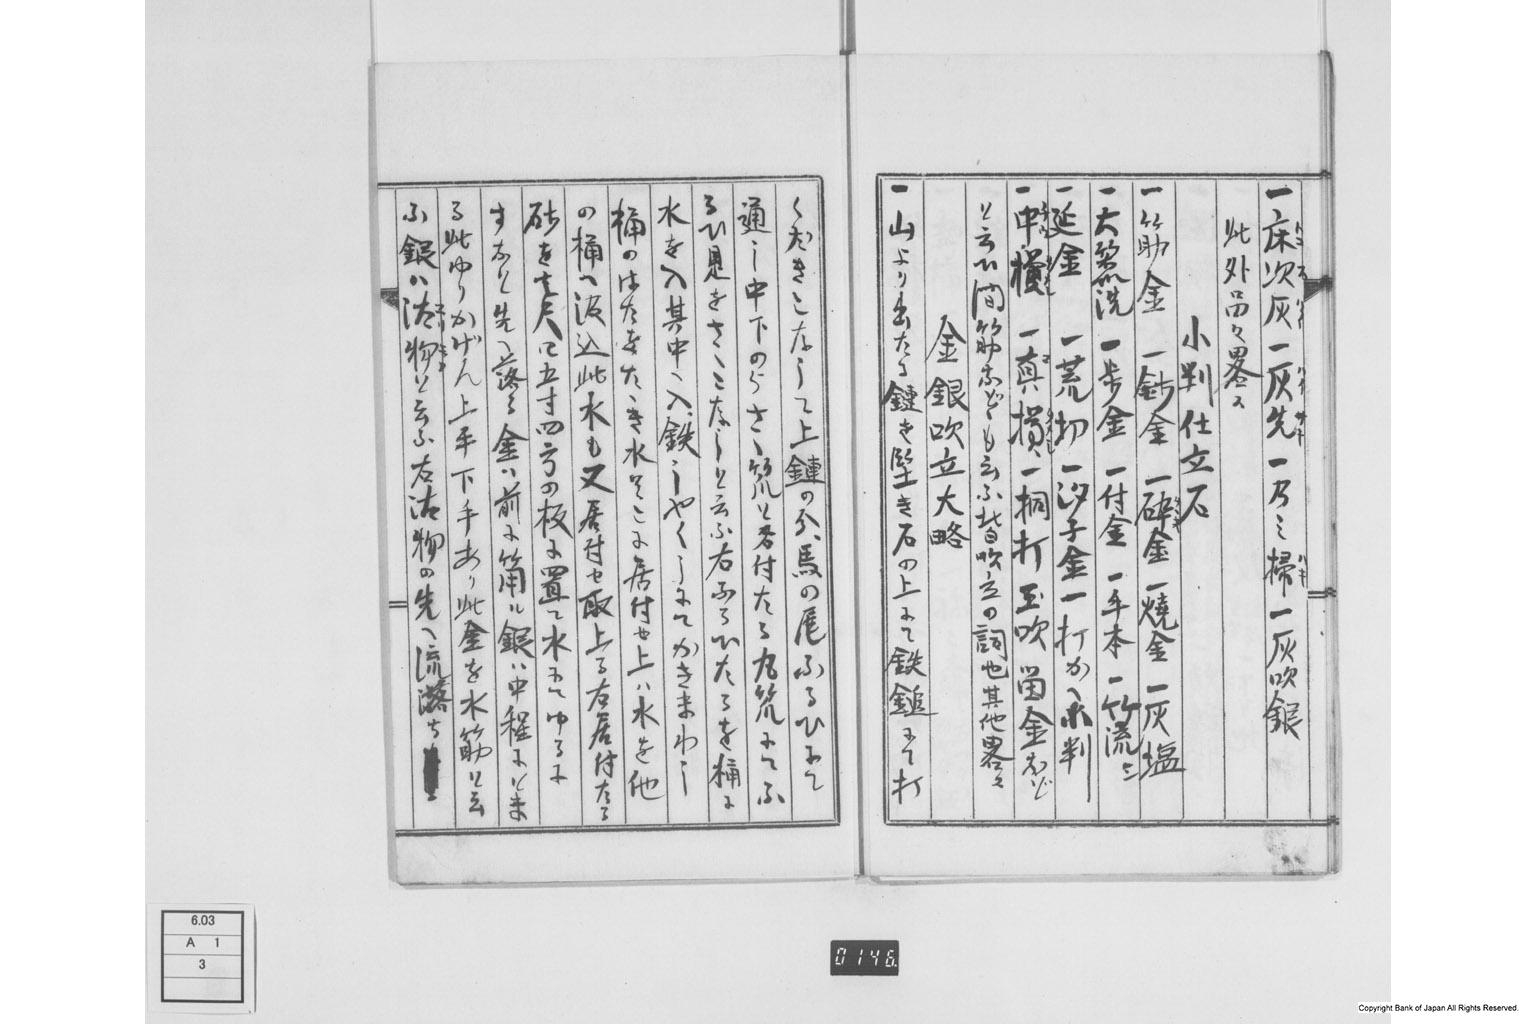 一床次灰一灰先一乃ミ掃一灰吹銀
此外品々畧之
小判仕立石
一筋金 一鈔金 一砕金一燒金一灰塩
一大笏洗 一歩金一付金一手本一竹流シ
一延金 一荒切一汐子金一打かへ小判
一中 一真 一桐打玉吹 留金など
と云ひ 筋などゝも云ふ皆吹立の詞也其他畧之
金銀吹立大略
一山より出たる鏈を堅き石の上にて鉄鎚にて打
くだきこなして上鏈の分、馬の尾ふるひにて
通し中下のらさく 笊と名付たる丸笊にてふ
るひ是をさくこなしと云ふ右ふるひたるを桶に
水を入其中へ入、鉄しやくしにてかきまわし
桶のはたをたゝき水そこに居付也上ハ水を他
の桶へ汲込此水も又居付也取上る右居付たる
砂を 尺 五寸四方の板に置て水にてゆるに
すなわ先へ落る金ハ前に筋ル銀ハ中程にとま
る此ゆりかげん上手下手あり此金を水筋と云
ふ銀ハ沽物と云ふ右沽物の先へ流落ち
6.03
A 1
3
0146
Copyright Bank of Japan All Rights Reserved.